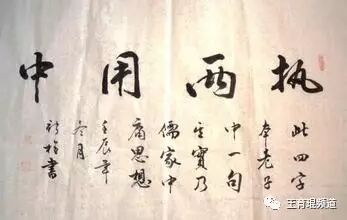 执两用中
此四字
本老子
中一句
其實乃
儒家中
庸思想
壬辰年
冬月
書
王育琨频道